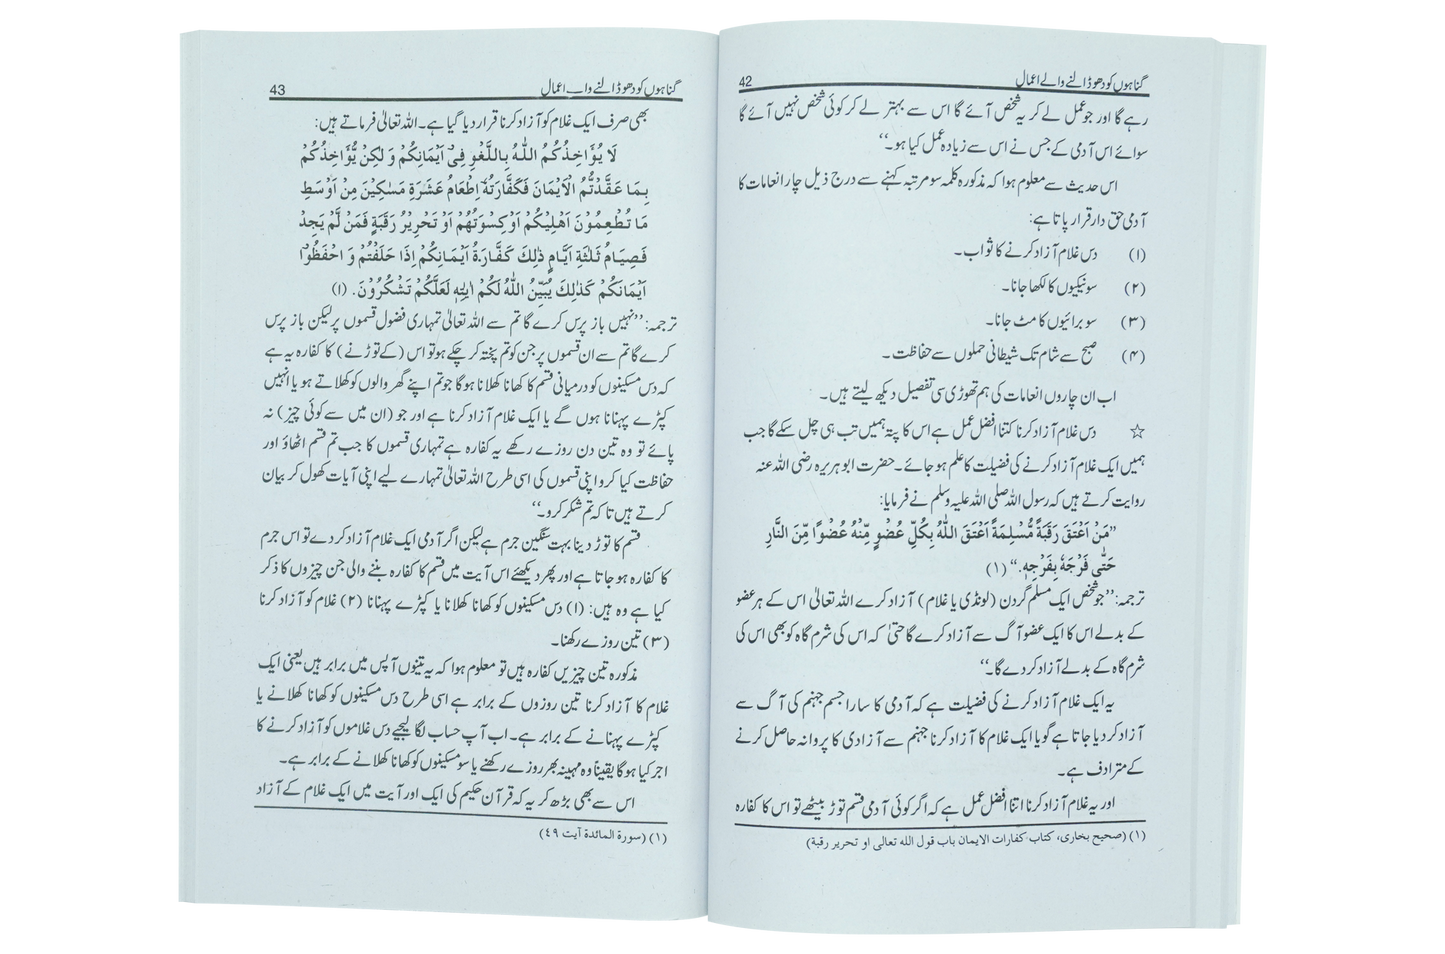 گناہوں کو دھو ڈالنے والے اعمال 42
رہے گا اور جو عمل لے کر یہ شخص آئے گا اس سے بہتر لے کر کوئی شخص نہیں آئے گا
سوائے اس آدمی کے جس نے اس سے زیادہ عمل کیا ہو۔‘‘
اس حدیث سے معلوم ہوا کہ مذکورہ کلمہ سو مرتبہ کہنے سے درج ذیل چار انعامات کا
آدمی حق دار قرار پاتا ہے:
(۱) دس غلام آزاد کرنے کا ثواب۔
(۲) سو نیکیوں کا لکھا جانا۔
(۳) سو برائیوں کا مٹ جانا۔
(۴) صبح سے شام تک شیطانی حملوں سے حفاظت۔
اب ان چاروں انعامات کی ہم تھوڑی سی تفصیل دیکھ لیتے ہیں۔
☆ دس غلام آزاد کرنا کتنا افضل عمل ہے اس کا پتہ ہمیں تب ہی چل سکے گا جب
ہمیں ایک غلام آزاد کرنے کی فضیلت کا علم ہو جائے۔ حضرت ابوہریرہ رضی اللہ عنہ
روایت کرتے ہیں کہ رسول اللہ صلی اللہ علیہ وسلم نے فرمایا:
”مَنْ اَعْتَقَ رَقَبَةً مُّسْلِمَةً اَعْتَقَ اللّٰهُ بِكُلِّ عُضْوٍ مِّنْهُ عُضْوًا مِّنَ النَّارِ
حَتّٰى فَرْجَهٗ بِفَرْجِهٖ.“ (۱)
ترجمہ: ’’جو شخص ایک مسلم گردن (لونڈی یا غلام) آزاد کرے اللہ تعالیٰ اس کے ہر عضو
کے بدلے اس کا ایک عضو آگ سے آزاد کرے گا حتیٰ کہ اس کی شرم گاہ کو بھی اس کی
شرم گاہ کے بدلے آزاد کر دے گا۔‘‘
یہ ایک غلام آزاد کرنے کی فضیلت ہے کہ آدمی کا سارا جسم جہنم کی آگ سے
آزاد کر دیا جاتا ہے گویا ایک غلام کا آزاد کرنا جہنم سے آزادی کا پروانہ حاصل کرنے
کے مترادف ہے۔
اور یہ غلام آزاد کرنا اتنا افضل عمل ہے کہ اگر کوئی آدمی قسم توڑ بیٹھے تو اس کا کفارہ
(۱) (صحیح بخاری، کتاب کفارات الایمان باب قول اللہ تعالی او تحریر رقبة)
گناہوں کو دھو ڈالنے والے اعمال 43
بھی صرف ایک غلام کو آزاد کرنا قرار دیا گیا ہے۔ اللہ تعالیٰ فرماتے ہیں:
لَا يُؤَاخِذُكُمُ اللّٰهُ بِاللَّغْوِ فِىْٓ اَيْمَانِكُمْ وَ لٰكِنْ يُّؤَاخِذُكُمْ
بِمَا عَقَّدْتُّمُ الْاَيْمَانَ فَكَفَّارَتُهٗٓ اِطْعَامُ عَشَرَةِ مَسٰكِيْنَ مِنْ اَوْسَطِ
مَا تُطْعِمُوْنَ اَهْلِيْكُمْ اَوْ كِسْوَتُهُمْ اَوْ تَحْرِيْرُ رَقَبَةٍ فَمَنْ لَّمْ يَجِدْ
فَصِيَامُ ثَلٰثَةِ اَيَّامٍ ذٰلِكَ كَفَّارَةُ اَيْمَانِكُمْ اِذَا حَلَفْتُمْ وَ احْفَظُوْٓا
اَيْمَانَكُمْ كَذٰلِكَ يُبَيِّنُ اللّٰهُ لَكُمْ اٰيٰتِهٖ لَعَلَّكُمْ تَشْكُرُوْنَ. (۱)
ترجمہ: ’’نہیں باز پرس کرے گا تم سے اللہ تعالیٰ تمہاری فضول قسموں پر لیکن باز پرس
کرے گا تم سے ان قسموں پر جن کو تم پختہ کر چکے ہو تو اس (کے توڑنے) کا کفارہ یہ ہے
کہ دس مسکینوں کو درمیانی قسم کا کھانا کھلانا ہوگا جو تم اپنے گھر والوں کو کھلاتے ہو یا انہیں
کپڑے پہنانا ہوں گے یا ایک غلام آزاد کرنا ہے اور جو (ان میں سے کوئی چیز) نہ
پائے تو وہ تین دن روزے رکھے یہ کفارہ ہے تمہاری قسموں کا جب تم قسم اٹھاؤ اور
حفاظت کیا کرو اپنی قسموں کی اسی طرح اللہ تعالیٰ تمہارے لیے اپنی آیات کھول کر بیان
کرتے ہیں تا کہ تم شکر کرو۔‘‘
قسم کا توڑ دینا بہت سنگین جرم ہے لیکن اگر آدمی ایک غلام آزاد کر دے تو اس جرم
کا کفارہ ہو جاتا ہے اور پھر دیکھئے اس آیت میں قسم کا کفارہ بننے والی جن چیزوں کا ذکر
کیا ہے وہ ہیں: (۱) دس مسکینوں کو کھانا کھلانا یا کپڑے پہنانا (۲) غلام کو آزاد کرنا
(۳) تین روزے رکھنا۔
مذکورہ تین چیزیں کفارہ ہیں تو معلوم ہوا کہ یہ تینوں آپس میں برابر ہیں یعنی ایک
غلام کا آزاد کرنا تین روزوں کے برابر ہے اسی طرح دس مسکینوں کو کھانا کھلانے یا
کپڑے پہنانے کے برابر ہے۔ اب آپ حساب لگا لیجیے دس غلاموں کو آزاد کرنے کا
اجر کیا ہوگا یقیناً وہ مہینہ بھر روزے رکھنے یا سو مسکینوں کو کھانا کھلانے کے برابر ہے۔
اس سے بھی بڑھ کر یہ کہ قرآن حکیم کی ایک اور آیت میں ایک غلام کے آزاد
(۱) (سورة المائدة آیت ٤٩)